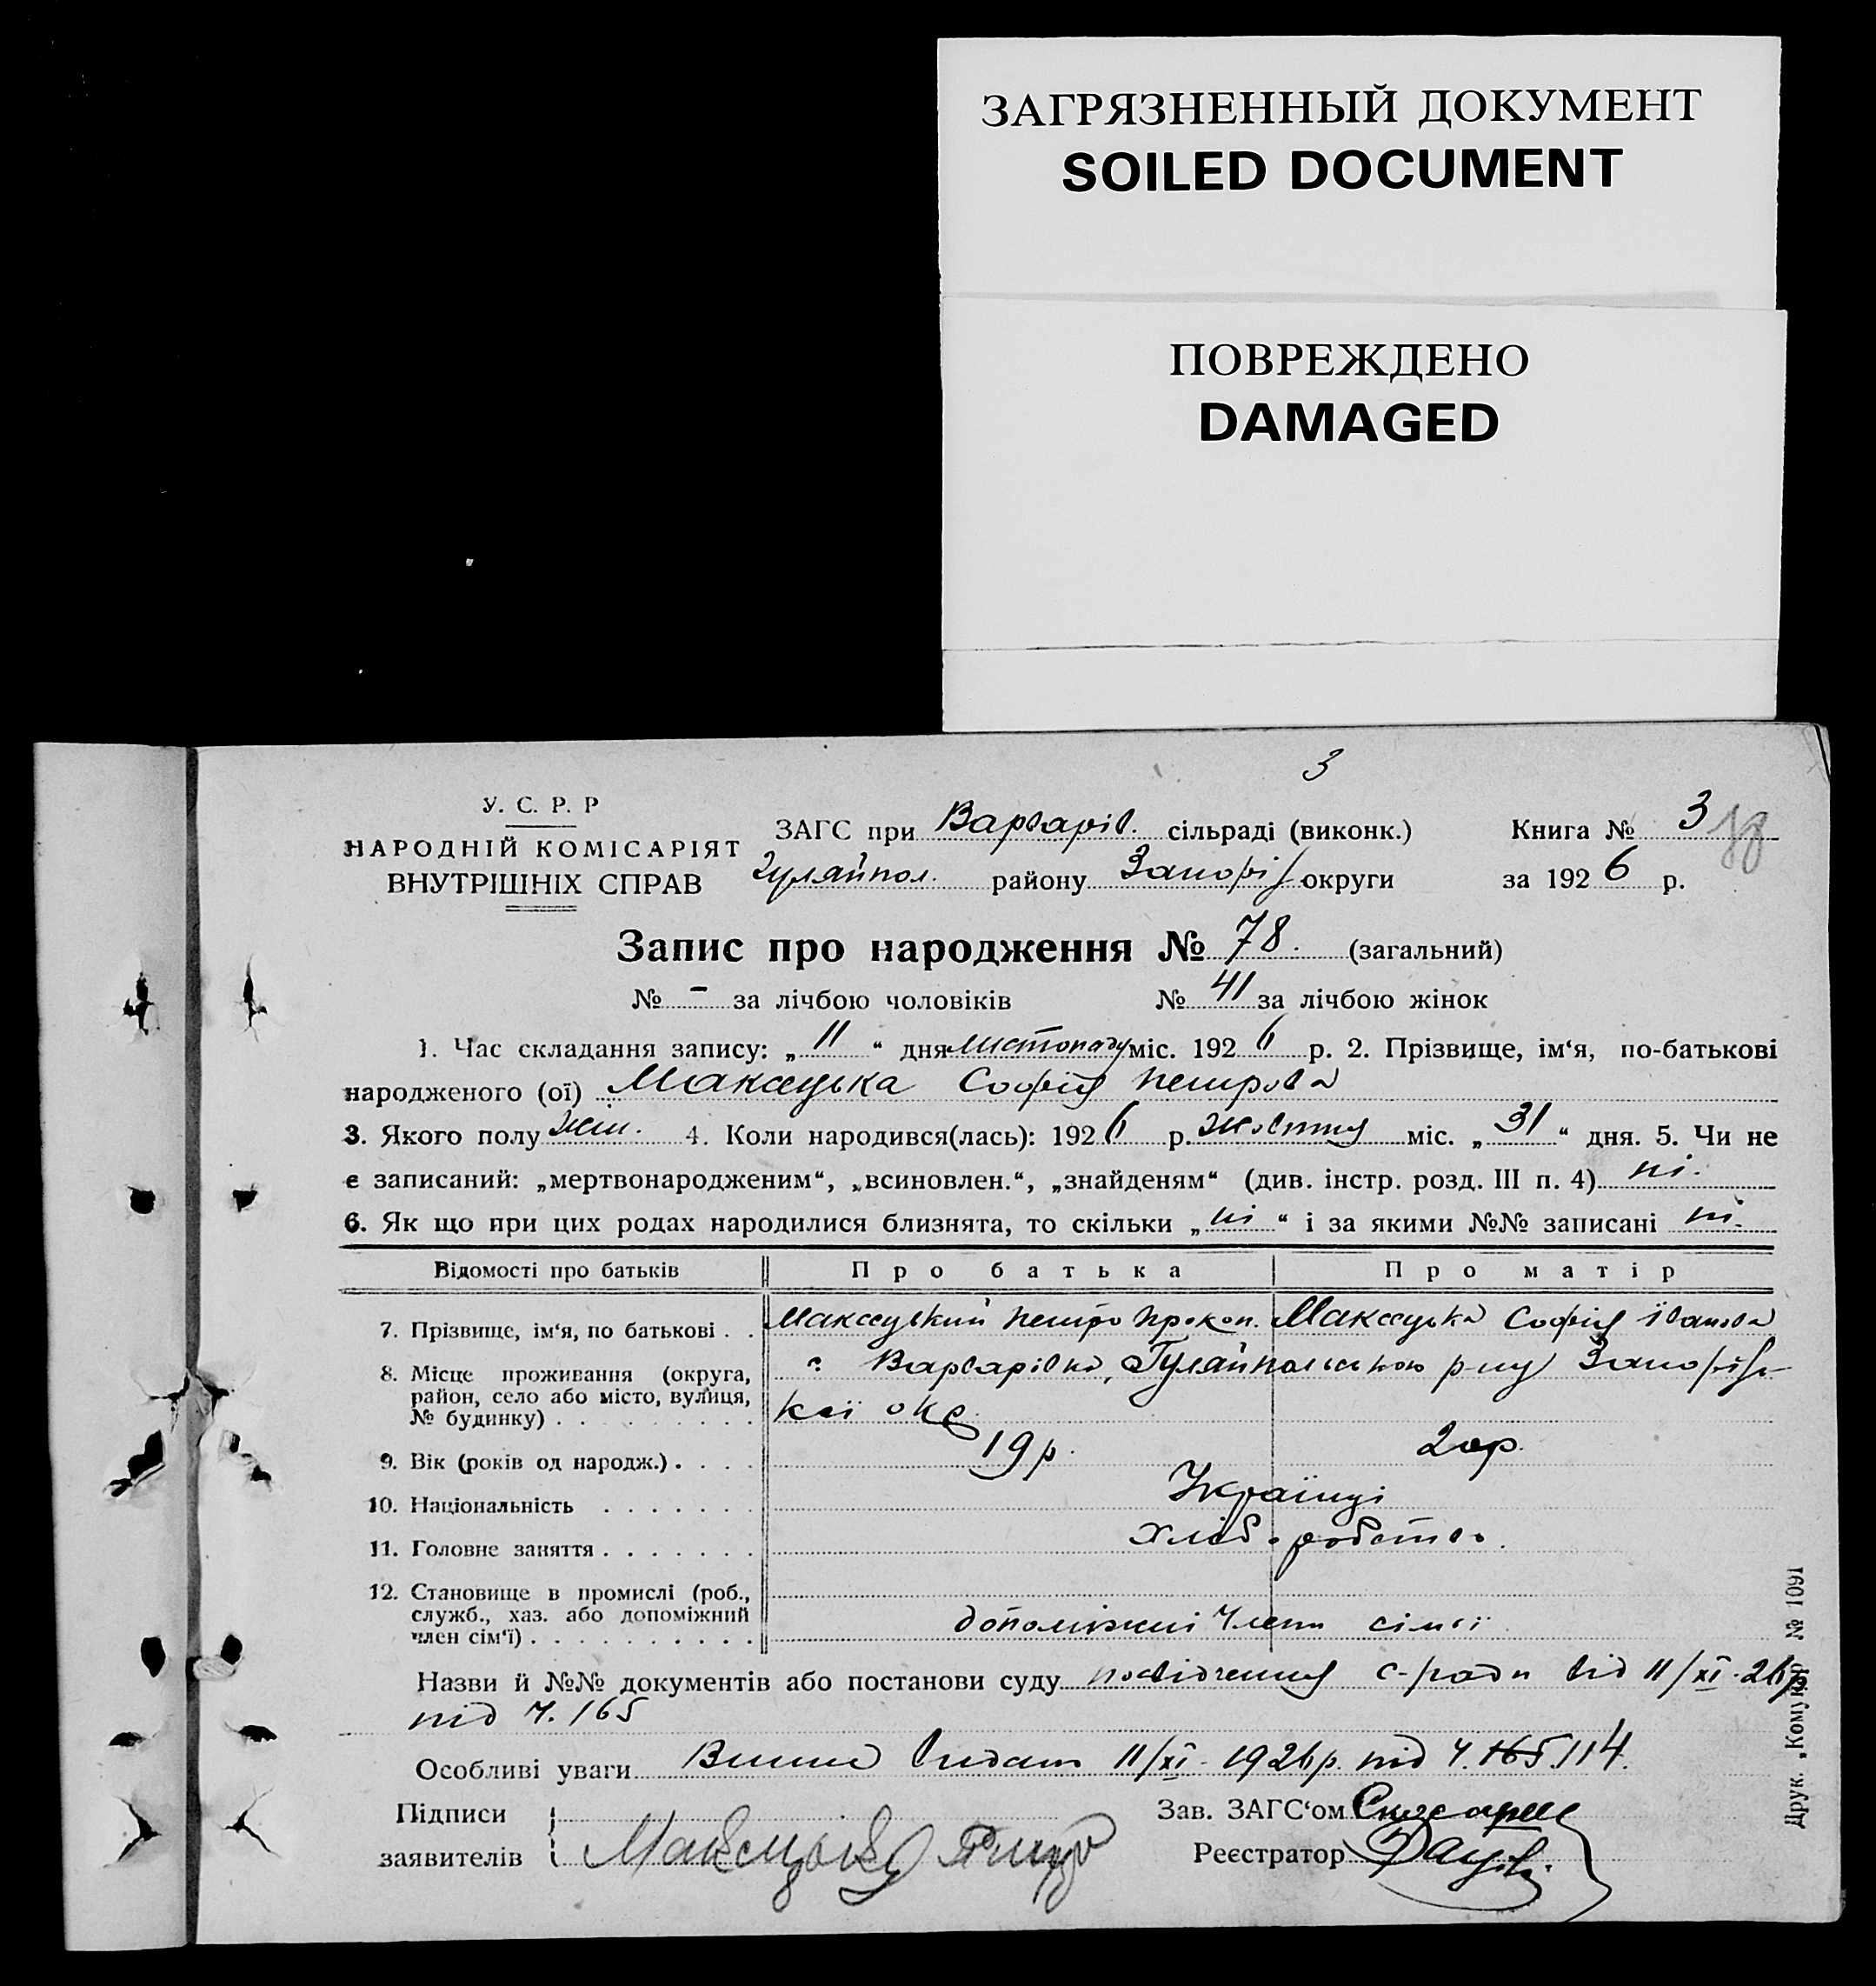 ЗАГРЯЗНЕННЫЙ ДОКУМЕНТ
SOILED DOCUMENT
ПОВРЕЖДЕНО
DAMAGED
3
У. С. Р. Р
НАРОДНІЙ КОМІСАРІЯТ
ВНУТРІШНІХ СПРАВ
ЗАГС при Варварів. сільраді (виконк.) Книга № 3
Гуляйпол. району Запоріз округи за 1926 р.
Запис про народження № 78. (загальний)
№ - за лічбою чоловіків № 41 за лічбою жінок
1. Час складання запису: „11“ дня листопаду міс. 1926 р. 2. Прізвище, ім‘я, по-батькові
народженого (ої) Максецька Софія Петрова
3. Якого полу жін. 4. Коли народився(лась): 1926 р. жовтня міс. „31“ дня. 5. Чи не
є записаний: „мертвонародженим“, „всиновлен.“, „знайденям“ (див. інстр. розд. III п. 4) ні.
6. Як що при цих родах народилися близнята, то скільки „ні“ і за якими №№ записані ні.
Відомості про батьків Про батька Про матір
7. Прізвище, ім‘я, по батькові . . Максецький Петро Прокоп. Максецька Софія Іванова
8. Місце проживання (округа, район, село або місто, вулиця, № будинку) . с. Варварівка, Гуляйпольського р-ну Запорізь-
кої окр.
9. Вік (років од народж.) . . . . 19 р. 20 р.
10. Національність . . . . . . . Українці
11. Головне заняття . . . . . . . Хліборобство.
12. Становище в промислі (роб., служб., хаз. або допоміжний член сім‘ї) . допоміжні члени сім'ї
Назви й №№ документів або постанови суду посвідчення с-ради від 11/XI-26 р.
під Ч. 165
Особливі уваги Випис видано 11/XI-1926 р. під Ч. 165. 114.
Підписи
заявителів
Зав. ЗАГС‘ом
Реєстратор
Друк. „Комунар № 1091